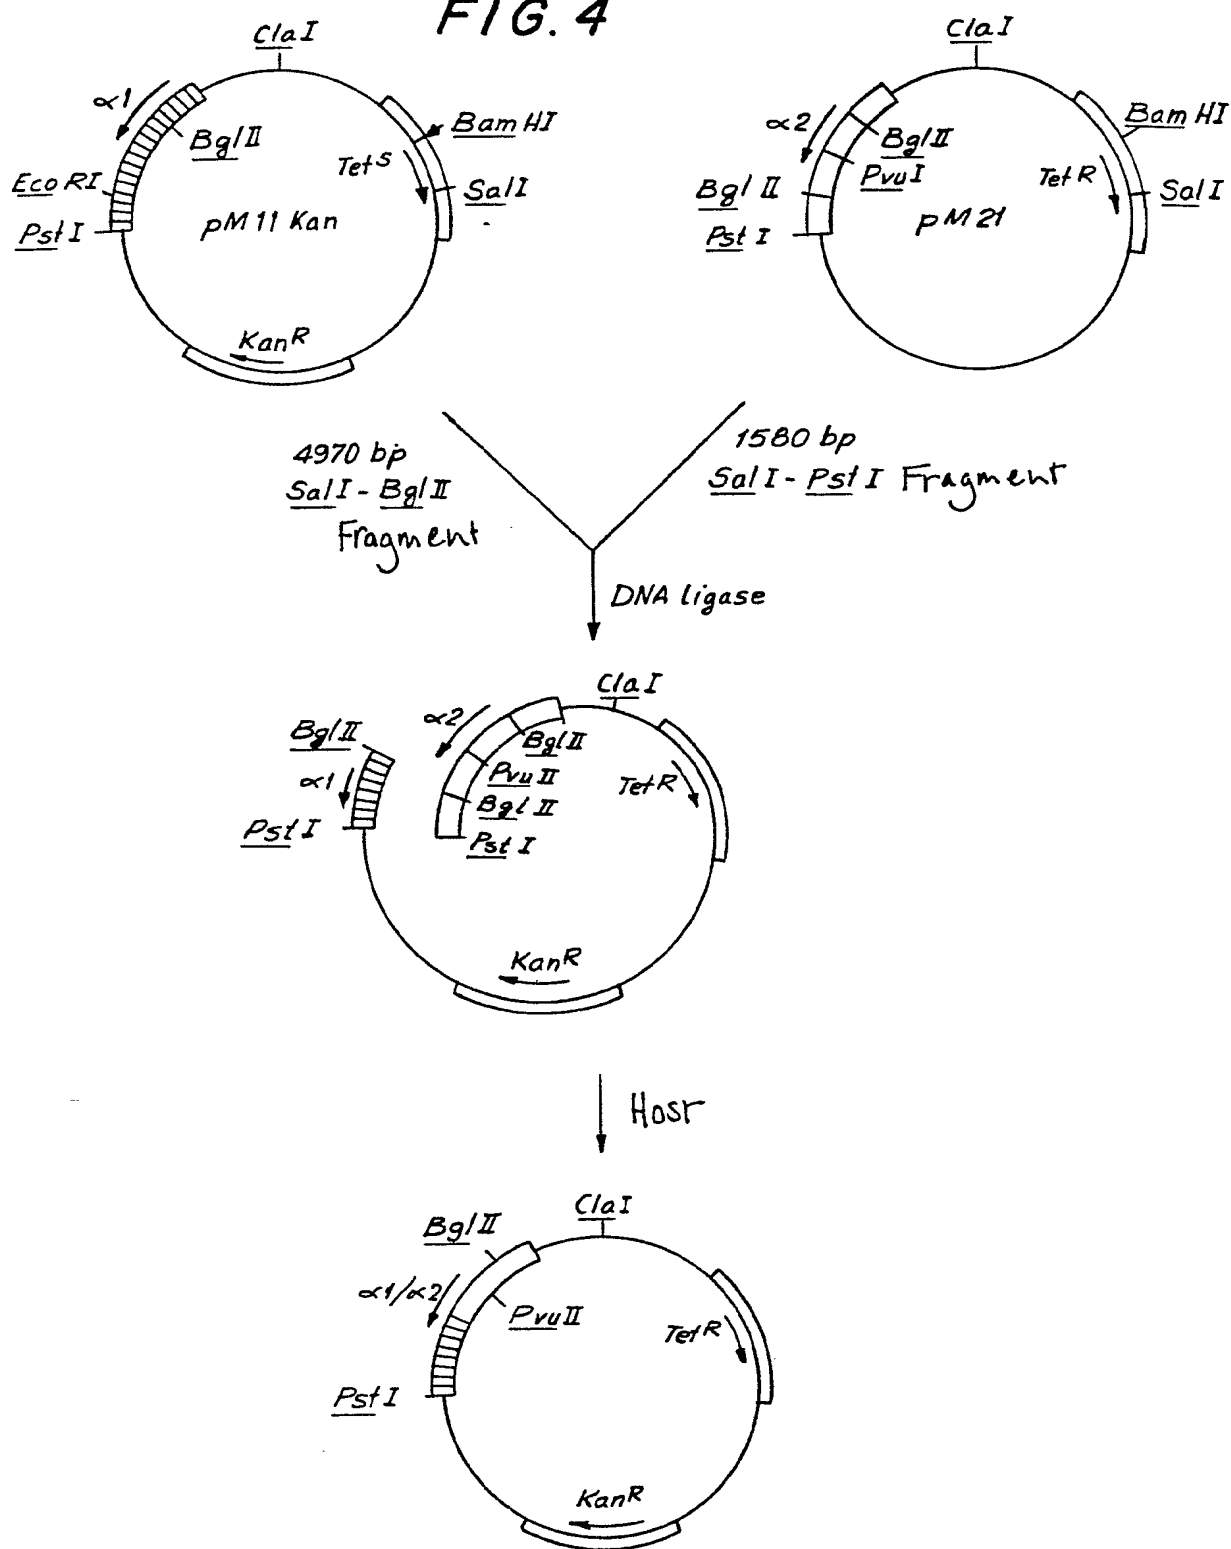 FIG. 4
ClaI
α1
BglII
BamHI
TetS
SalI
EcoRI
PstI
pM11 Kan
KanR
ClaI
α2
BglII
PvuI
BamHI
TetR
SalI
BglII
PstI
pM21
4970 bp
SalI-BglII
Fragment
1580 bp
SalI-PstI Fragment
DNA ligase
ClaI
BglII
α1
PstI
α2
BglII
PvuII
BglII
PstI
TetR
KanR
Host
ClaI
BglII
α1/α2
PvuII
TetR
PstI
KanR